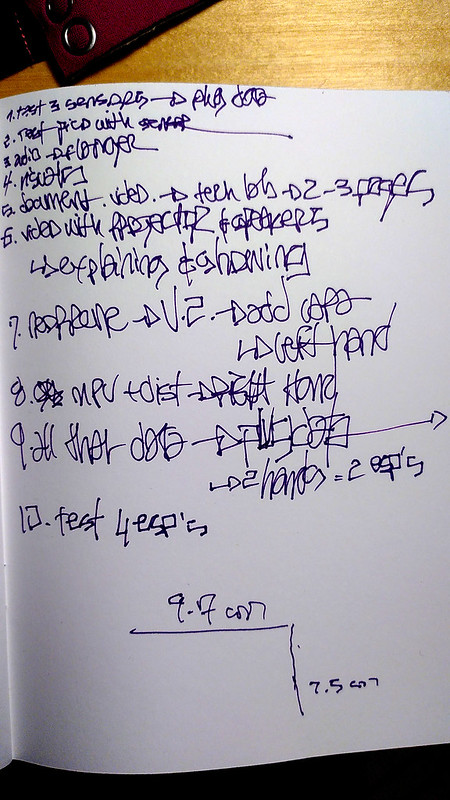 1. test 3 sensors → plug data
2. Test pico with sensor
3. adio → longer
4. visuals
5. document. video. → tech lab → 2-3 pages
6. video with PROJECTOR & speakers
↳ explaining & showing
7. → V.2. → add capa
↳ left hand
8. MPU + dist → Right Hand
9. all that data → plug data →
↳ 2 hands = 2 esp's
10. test 4 esp's
9.7 cm
7.5 cm